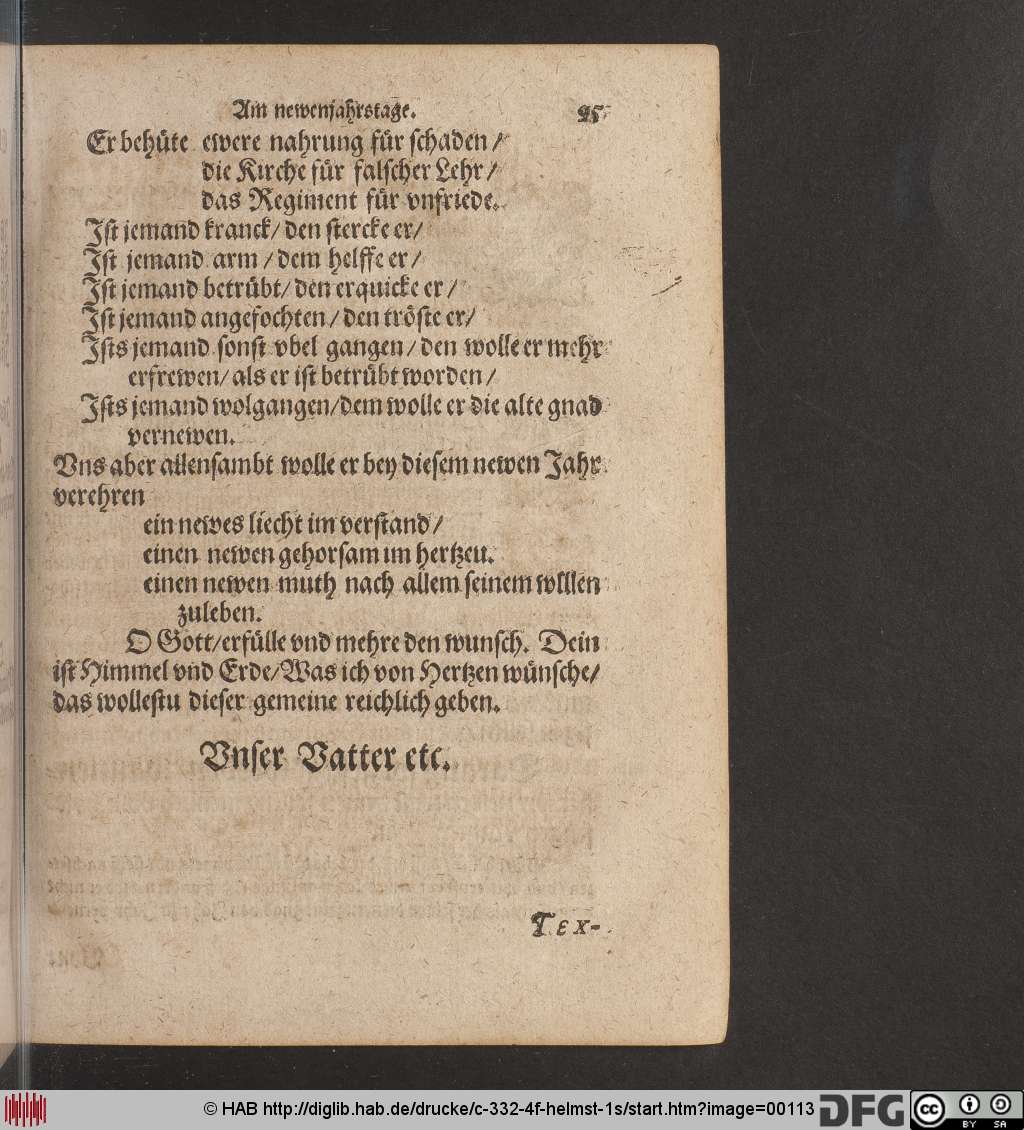 Am newenjahrstage. 95
Er behüte ewere nahrung für schaden /
die Kirche für falscher Lehr /
das Regiment für vnfriede.
Ist jemand kranck / den stercke er /
Ist jemand arm / dem helffe er /
Ist jemand betrübt / den erquicke er /
Ist jemand angefochten / den tröste er /
Ists jemand sonst vbel gangen / den wolle er mehr
erfrewen / als er ist betrübt worden /
Ists jemand wolgangen / dem wolle er die alte gnad
vernewen.
Vns aber allensambt wolle er bey diesem newen Jahr
verehren
ein newes liecht im verstand /
einen newen gehorsam im hertzeu.
einen newen muth nach allem seinem wlllen
zuleben.
O Gott / erfülle vnd mehre den wunsch. Dein
ist Himmel vnd Erde / Was ich von Hertzen wünsche /
das wollestu dieser gemeine reichlich geben.
Vnser Vatter etc.
Tex-
© HAB http://diglib.hab.de/drucke/c-332-4f-helmst-1s/start.htm?image=00113 DFG cc BY SA